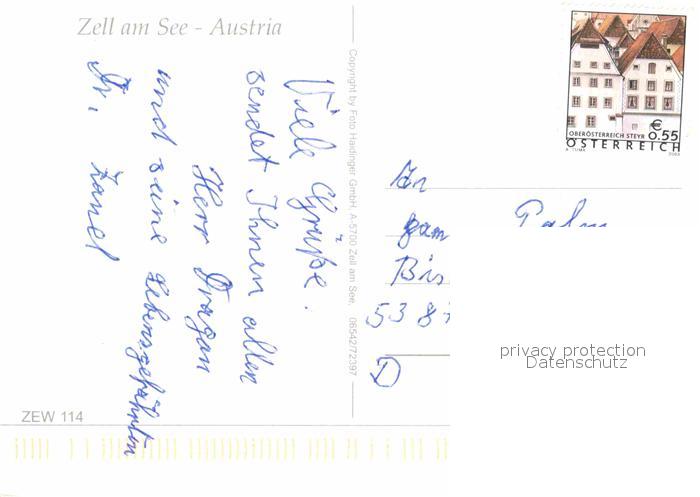 Zell am See - Austria
Viele Grüße.
sendet Ihnen allen
Herr Dragan
und seine Lebensgefährtin
Dr.
Copyright by Foto Haidinger GmbH, A-5700 Zell am See, 06542/72397
ZEW 114
OBERÖSTERREICH STEYR €0.55
ÖSTERREICH
An
Bis
538
D
privacy protection
Datenschutz